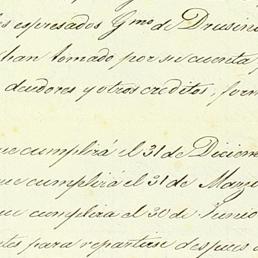 espresados Gmo de Drusina
han tomado por su cuenta
deudores y otros creditos, for
cumplirá el 31 de Diciem
cumplirá el 31 de Mayo
cumplira el 30 de Junio
para repartirse despues